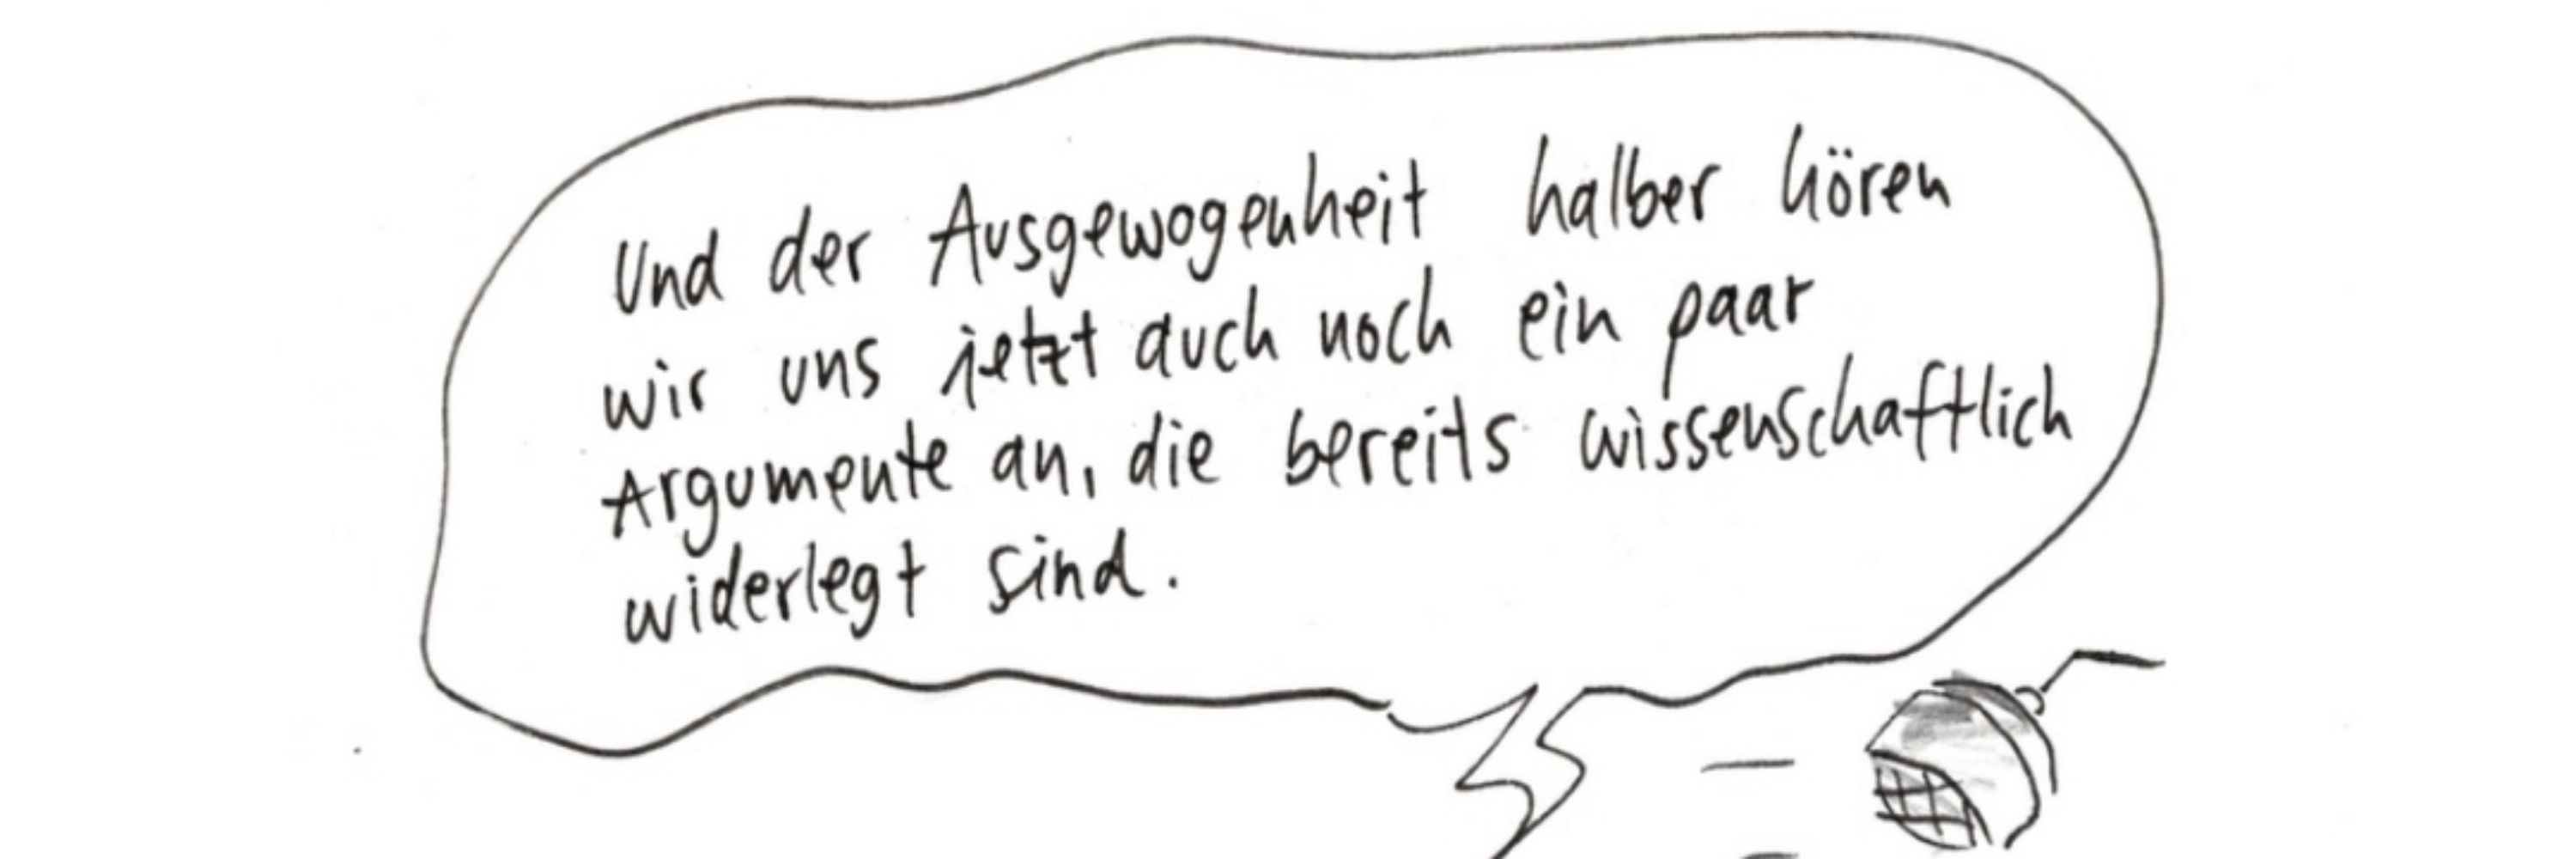 Und der Ausgewogenheit halber hören
wir uns jetzt auch noch ein paar
Argumente an, die bereits wissenschaftlich
widerlegt sind.